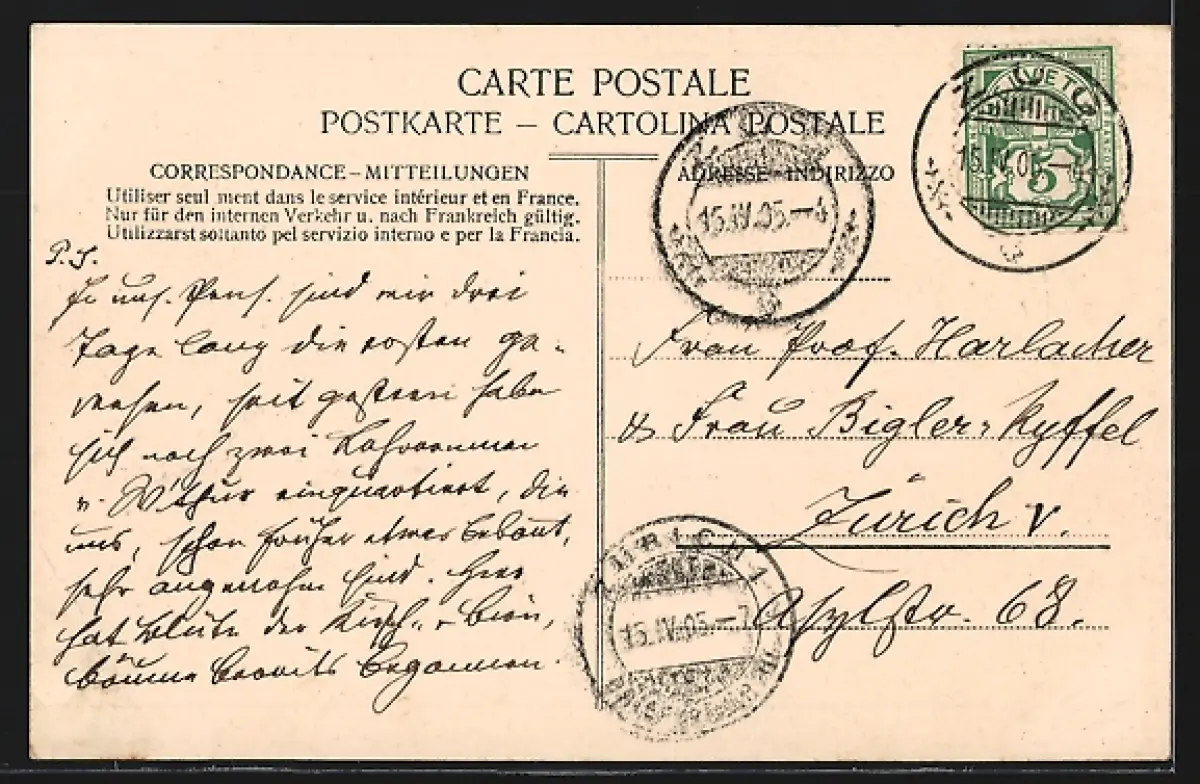 CARTE POSTALE
POSTKARTE – CARTOLINA POSTALE
CORRESPONDANCE – MITTEILUNGEN
Utiliser seul ment dans le service intérieur et en France.
Nur für den internen Verkehr u. nach Frankreich gültig.
Utilizzarst soltanto pel servizio interno e per la Francia.
P.S.
In uns. Pens. sind wir drei
Tage lang die ersten ge-
wesen, seit gestern haben
sich noch zwei
v. W'thur einquartiert, die
uns, schon früher etwas bekannt,
sehr angenehm sind. Hier
hat Blüte der Kirsch- & Birn-
bäume bereits begonnen.
ADRESSE – INDIRIZZO
Frau Prof. Harlacher
& Frau Bigler-Kyffel
Zürich V.
Asylstr. 68.
ZUG
15.IV.05.
HELVETIA
FRANCO
5
ZUG
15.IV.05.—4
ZÜRICH 1
15.IV.05.—7